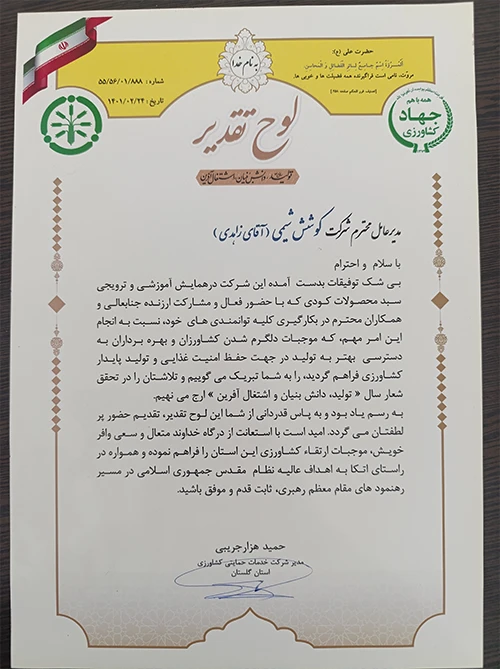 به نام خدا
حضرت علی (ع):
مروّت، نامی است فراگیرنده همه فضیلت ها و خوبی ها.
شماره : ۵۵/۵۶/۰۱/۸۸۸
تاریخ: ۱۴۰۱/۰۲/۲۴
همه با هم
جهاد
کشاورزی
لوح تقدیر
تولید، دانش بنیان، اشتغال آفرین
مدیر عامل محترم شرکت کوشش شیمی (آقای زاهدی)
با سلام و احترام
بی شک توفیقات بدست آمده این شرکت درهمایش آموزشی و ترویجی
سبد محصولات کودی که با حضور فعال و مشارکت ارزنده جنابعالی و
همکاران محترم در بکارگیری کلیه توانمندی های خود، نسبت به انجام
این امر مهم، که موجبات دلگرم شدن کشاورزان و بهره برداران به
دسترسی بهتر به تولید در جهت حفظ امنیت غذایی و تولید پایدار
کشاورزی فراهم گردید، را به شما تبریک می گوییم و تلاشتان را در تحقق
شعار سال « تولید، دانش بنیان و اشتغال آفرین » ارج می نهیم.
به رسم یاد بود و به پاس قدردانی از شما این لوح تقدیر، تقدیم حضور پر
لطفتان می گردد. امید است با استعانت از درگاه خداوند متعال و سعی وافر
خویش، موجبات ارتقاء کشاورزی این استان را فراهم نموده و همواره در
راستای اتکا به اهداف عالیه نظام مقدس جمهوری اسلامی در مسیر
رهنمود های مقام معظم رهبری، ثابت قدم و موفق باشید.
حمید هزارجریبی
مدیر شرکت خدمات حمایتی کشاورزی
استان گلستان